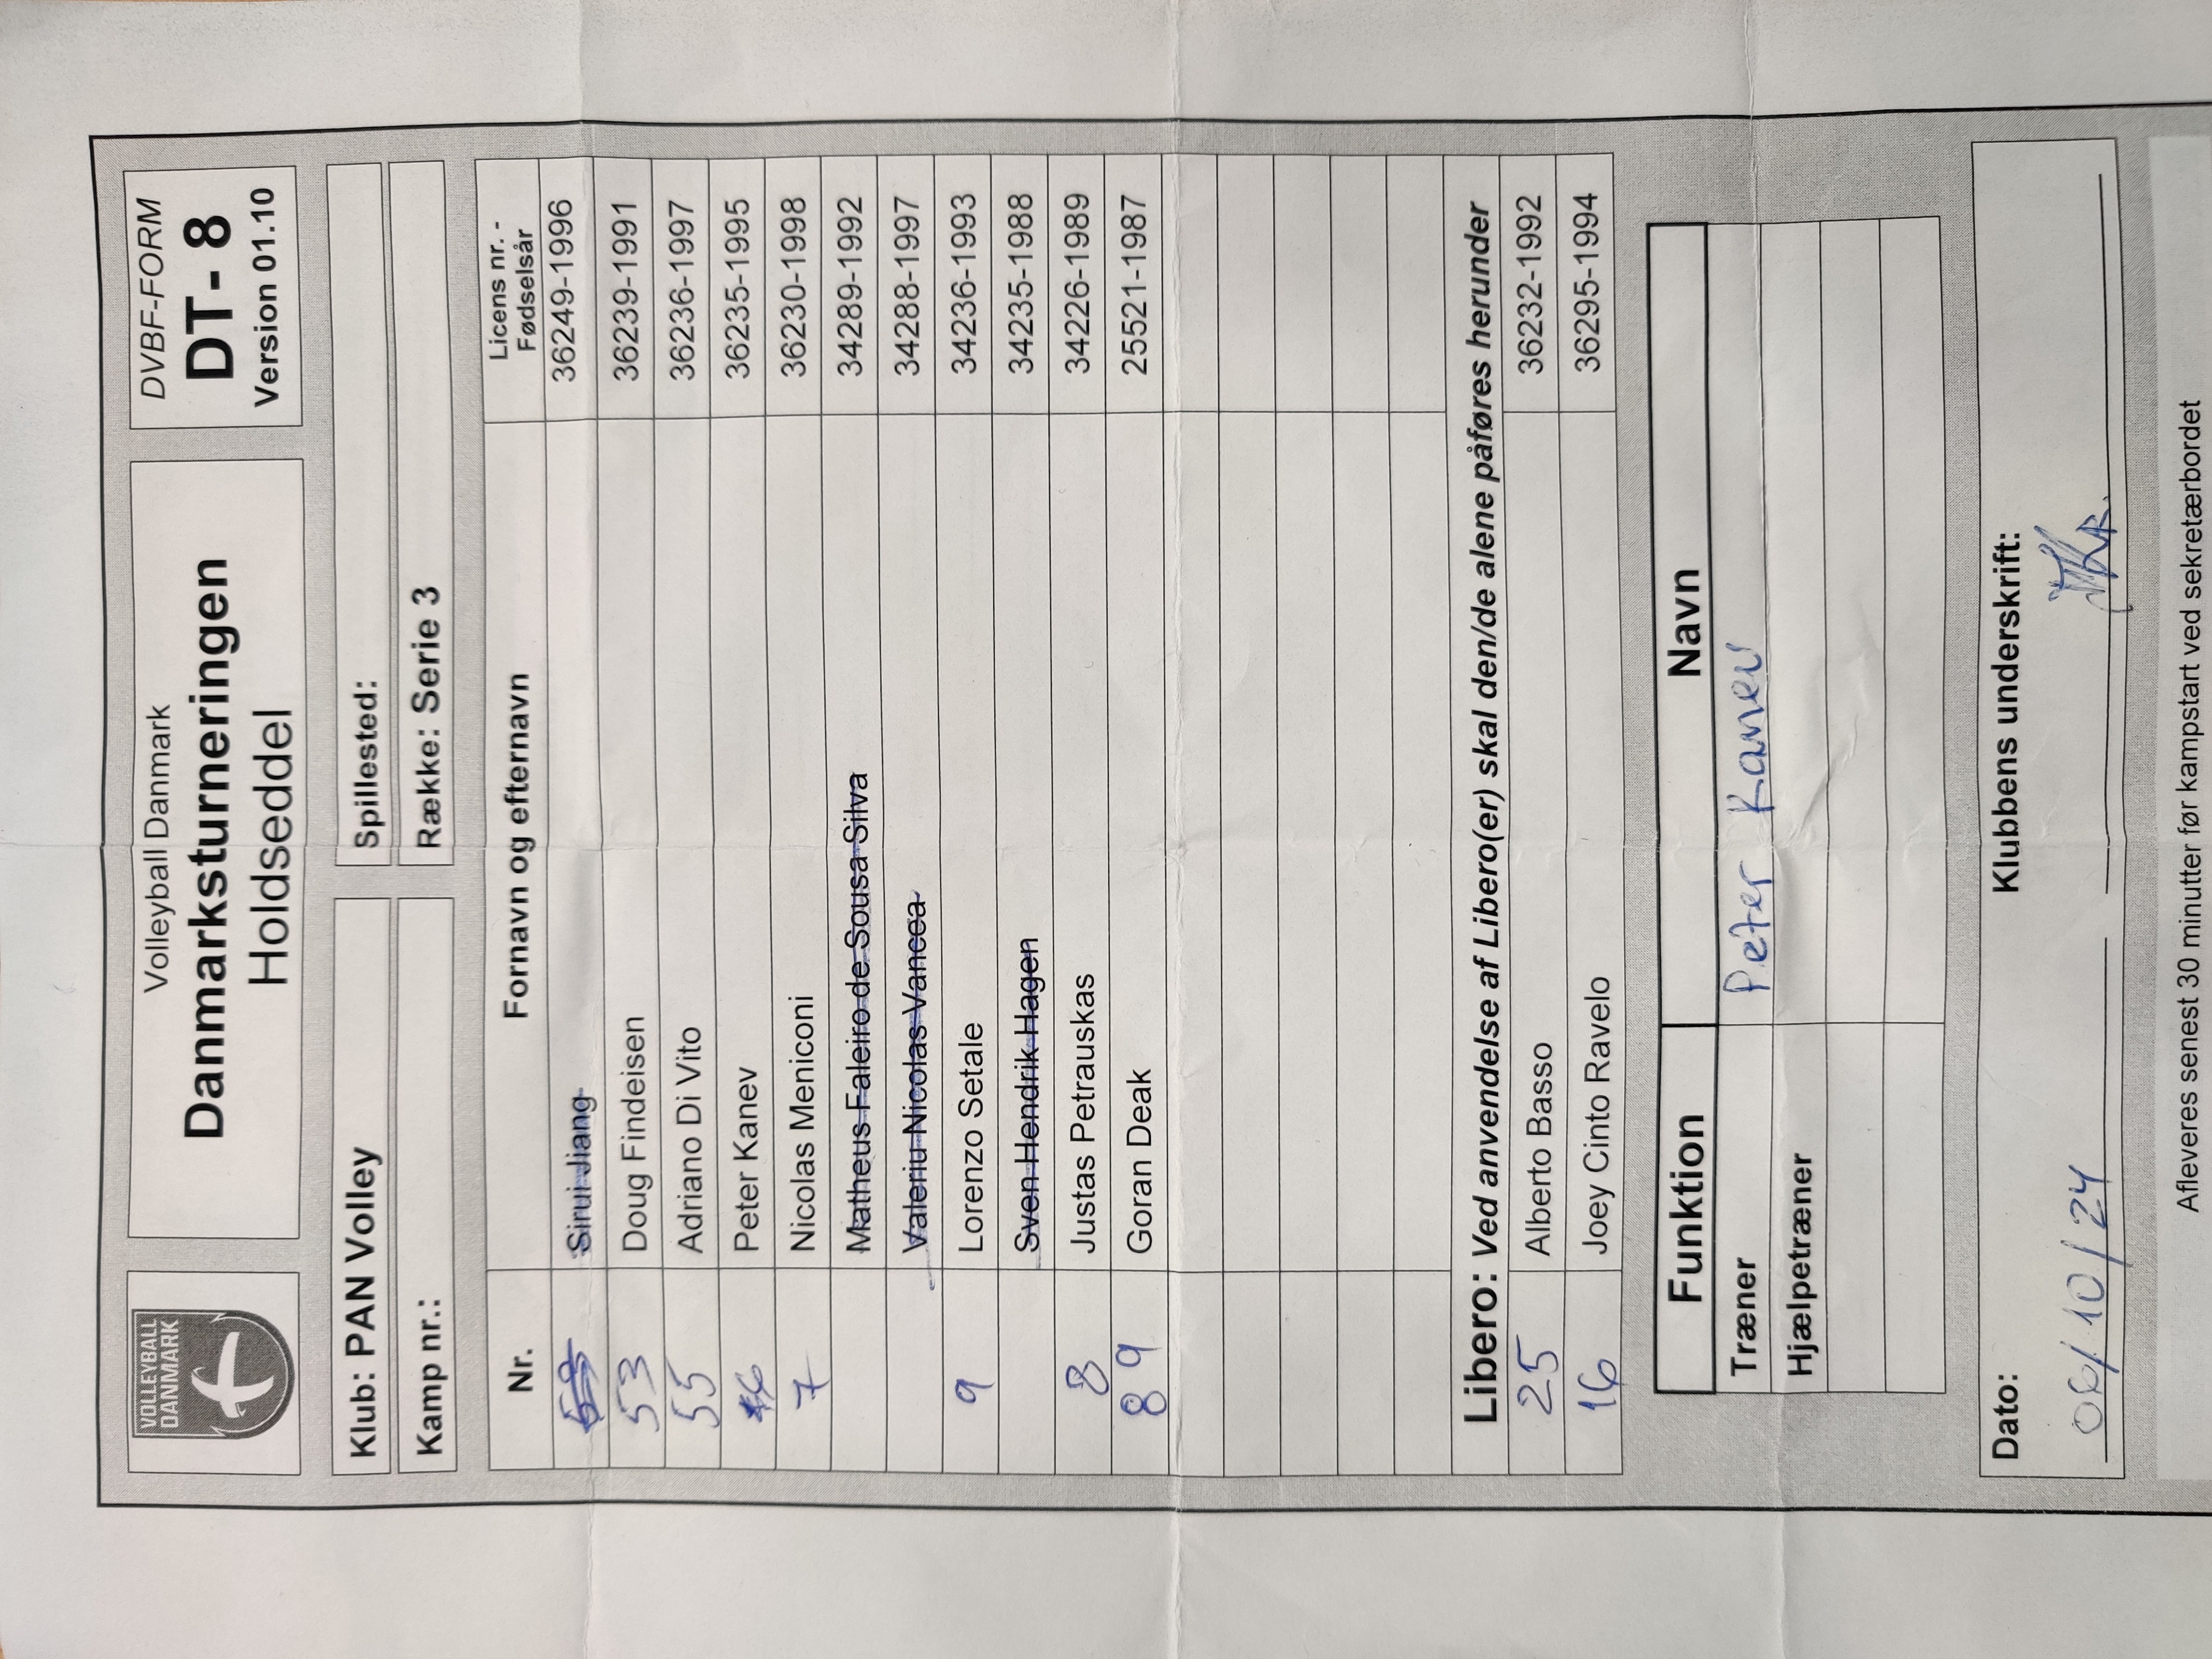 VOLLEYBALL
DANMARK
Volleyball Danmark
Danmarksturneringen
Holdseddel
DVBF-FORM
DT- 8
Version 01.10
Klub: PAN Volley
Spillested:
Kamp nr.:
Række: Serie 3
Nr. Fornavn og efternavn Licens nr. -
Fødselsår
Sirui Jiang 36249-1996
53 Doug Findeisen 36239-1991
55 Adriano Di Vito 36236-1997
Peter Kanev 36235-1995
7 Nicolas Meniconi 36230-1998
Matheus Faleiro de Sousa Silva 34289-1992
Valeriu Nicolas Vancea 34288-1997
9 Lorenzo Setale 34236-1993
Sven Hendrik Hagen 34235-1988
8 Justas Petrauskas 34226-1989
89 Goran Deak 25521-1987
Libero: Ved anvendelse af Libero(er) skal den/de alene påføres herunder
25 Alberto Basso 36232-1992
16 Joey Cinto Ravelo 36295-1994
Funktion Navn
Træner Peter Kanev
Hjælpetræner
Dato: Klubbens underskrift:
06/10/24
Afleveres senest 30 minutter før kampstart ved sekretærbordet